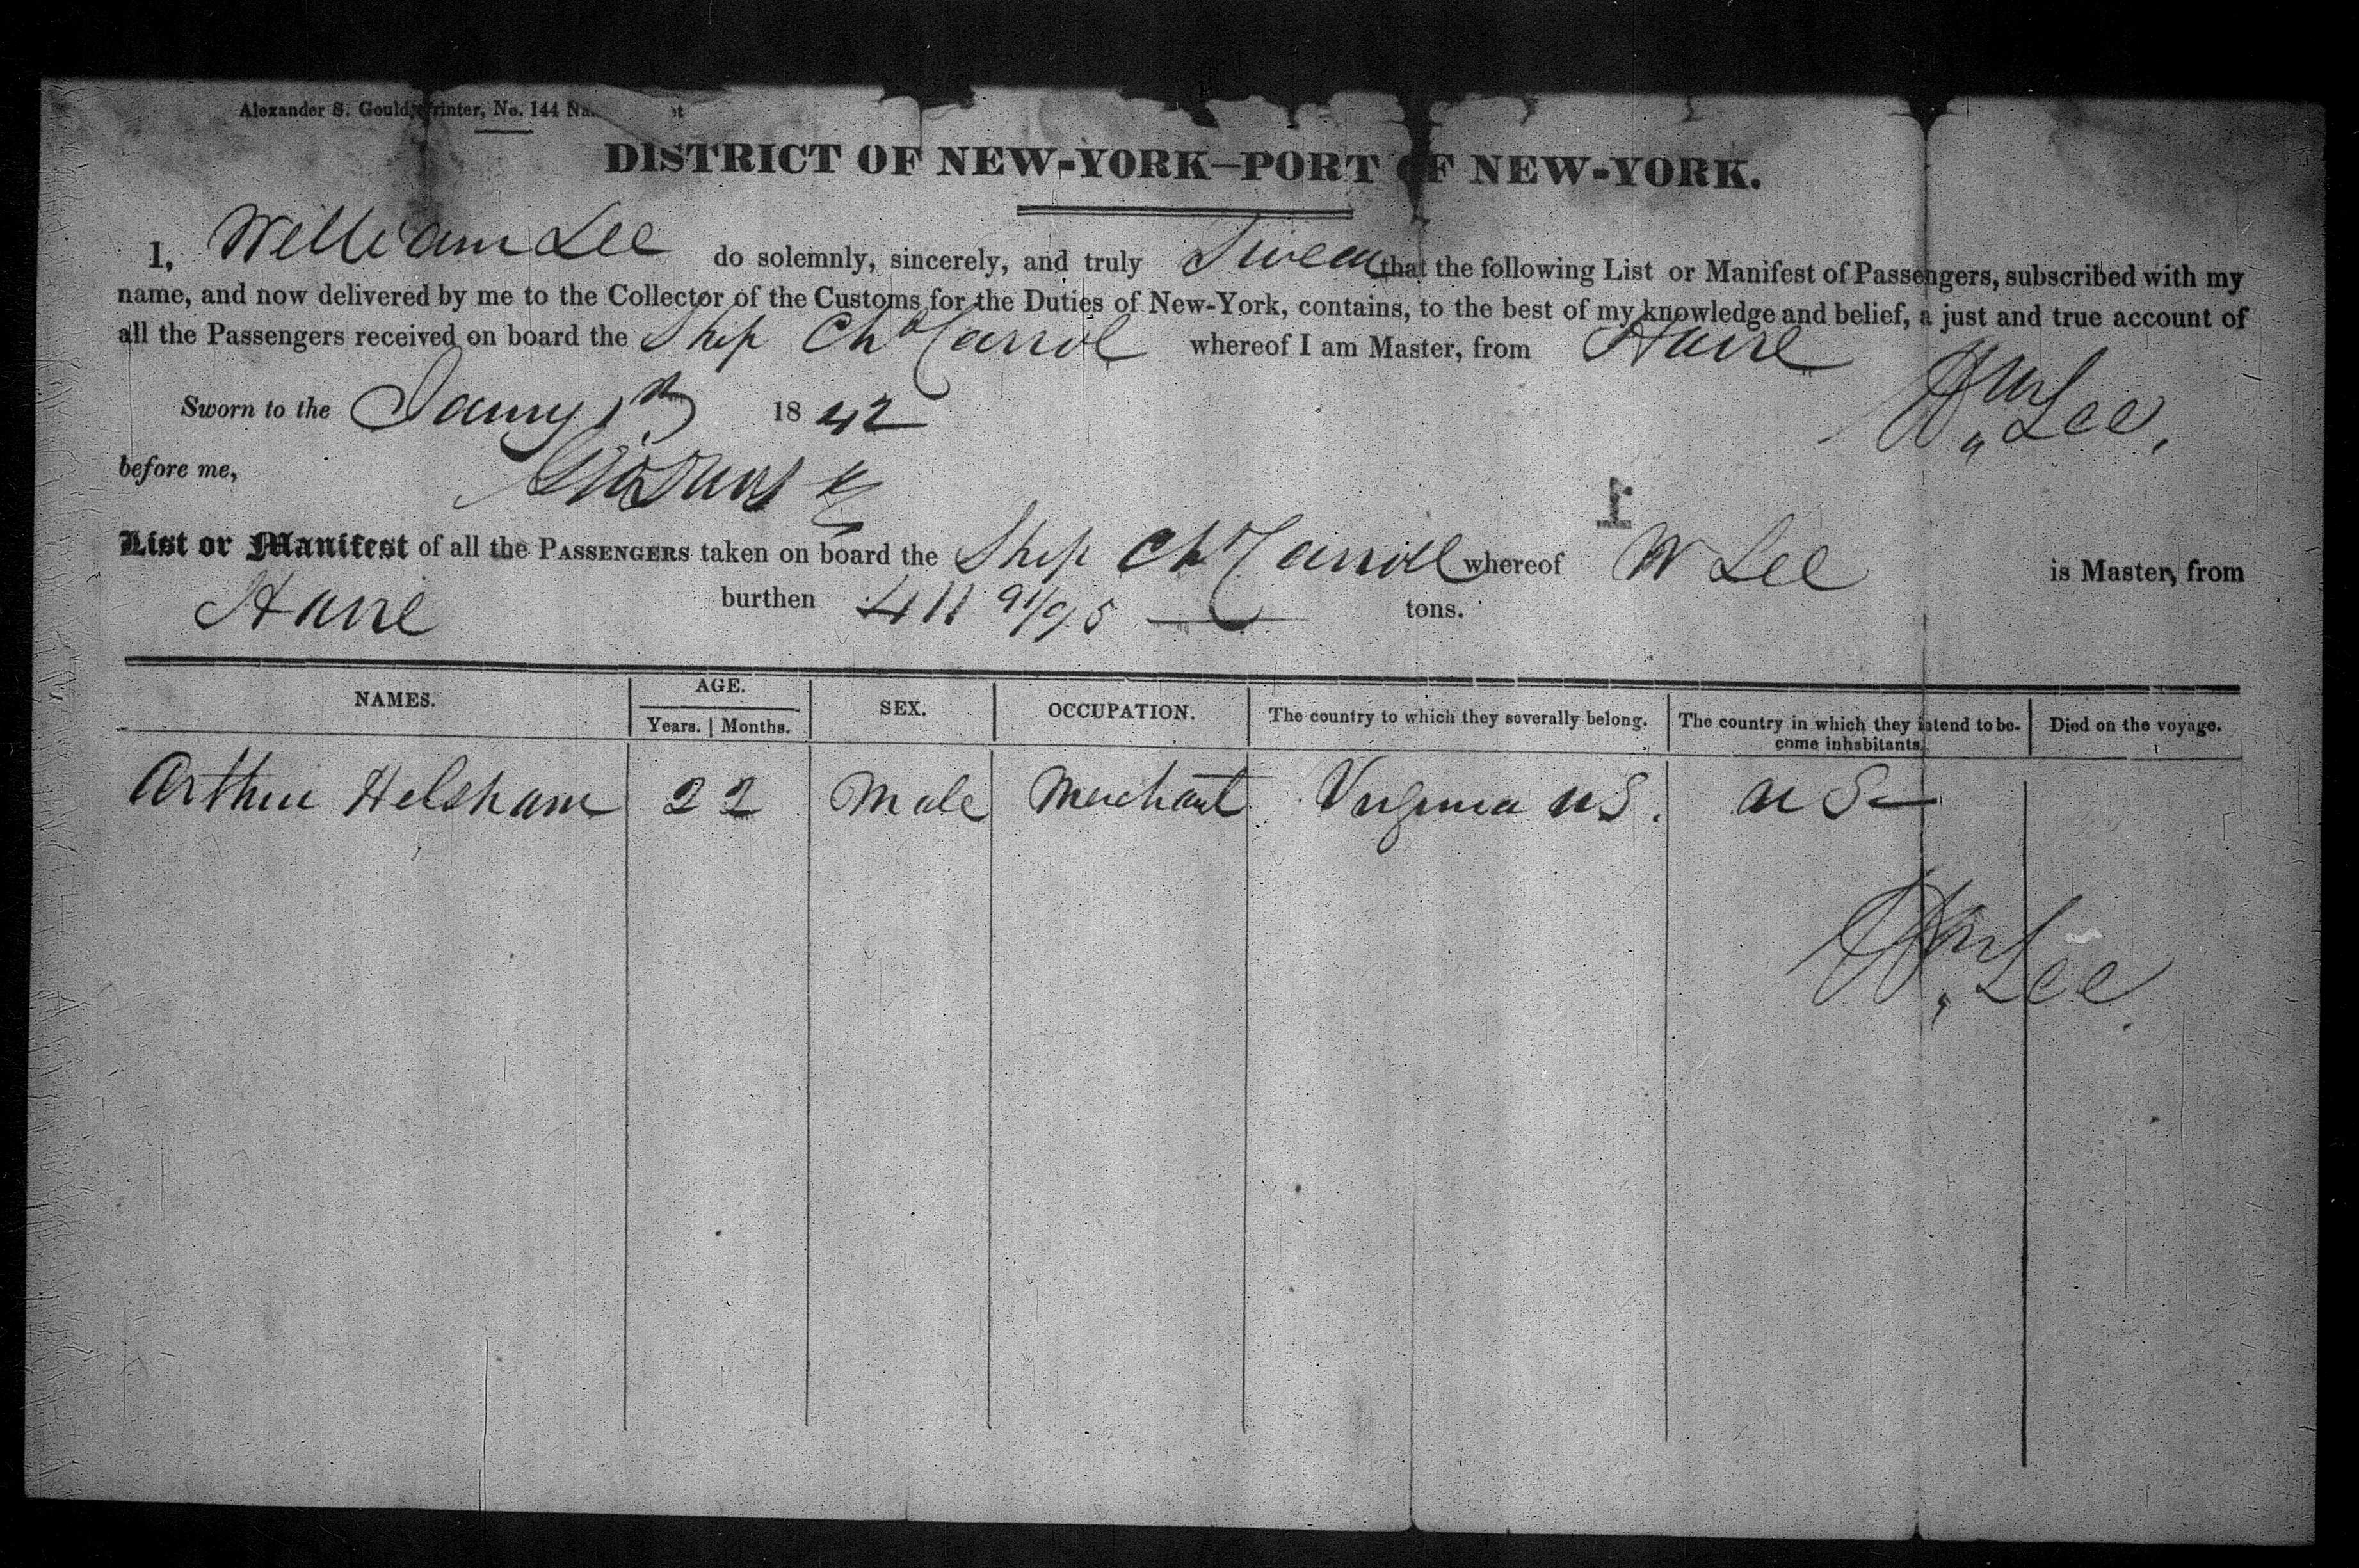 Alexander S. Gould, Printer, No. 144
DISTRICT OF NEW-YORK—PORT OF NEW-YORK.
I, William Lee do solemnly, sincerely, and truly Swear that the following List or Manifest of Passengers, subscribed with my
name, and now delivered by me to the Collector of the Customs for the Duties of New-York, contains, to the best of my knowledge and belief, a just and true account of
all the Passengers received on board the Ship Chs Carrol whereof I am Master, from Havre
Wm Lee
Sworn to the Jany 1842
before me,
1
List or Manifest of all the PASSENGERS taken on board the Ship Chs Carroll whereof W Lee is Master, from
Havre burthen 411 91/95 tons.
NAMES. AGE. SEX. OCCUPATION. The country to which they severally belong. The country in which they intend to be- Died on the voyage.
Years. | Months. come inhabitants.
Arthur Helsham 22 Male Merchant Virginia US. US
Wm Lee